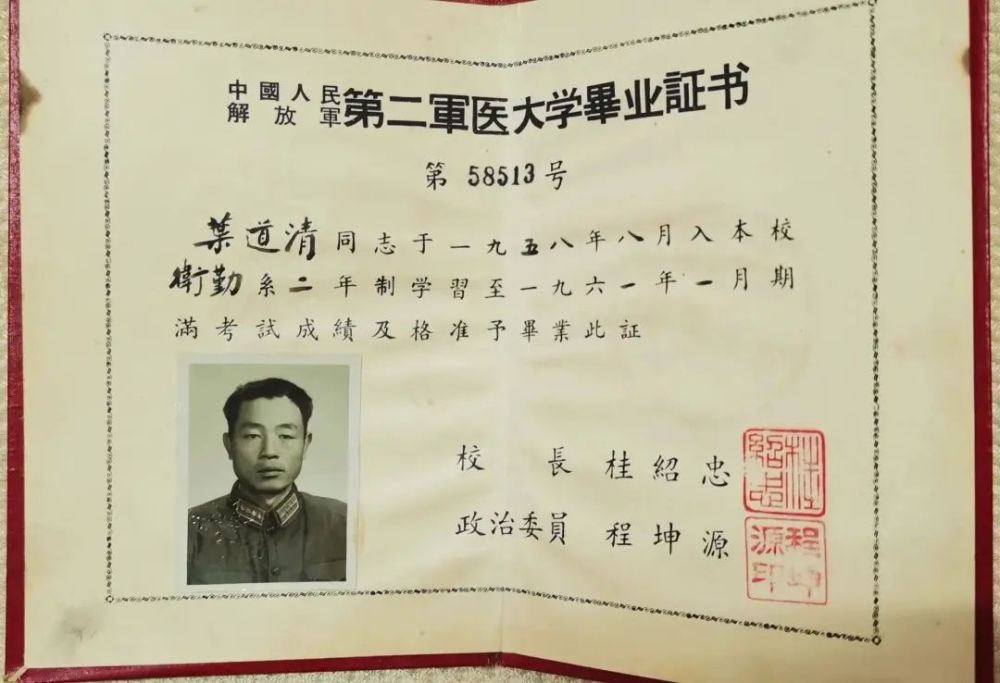 中國人民
解放軍
第二軍医大学畢业証书
第 58513 号
葉道清同志于一九五八年八月入本校
衛勤系二年制学習至一九六一年一月期
滿考試成績及格准予畢業此証
校長 桂紹忠
政治委員 程坤源
桂紹忠
程坤源印